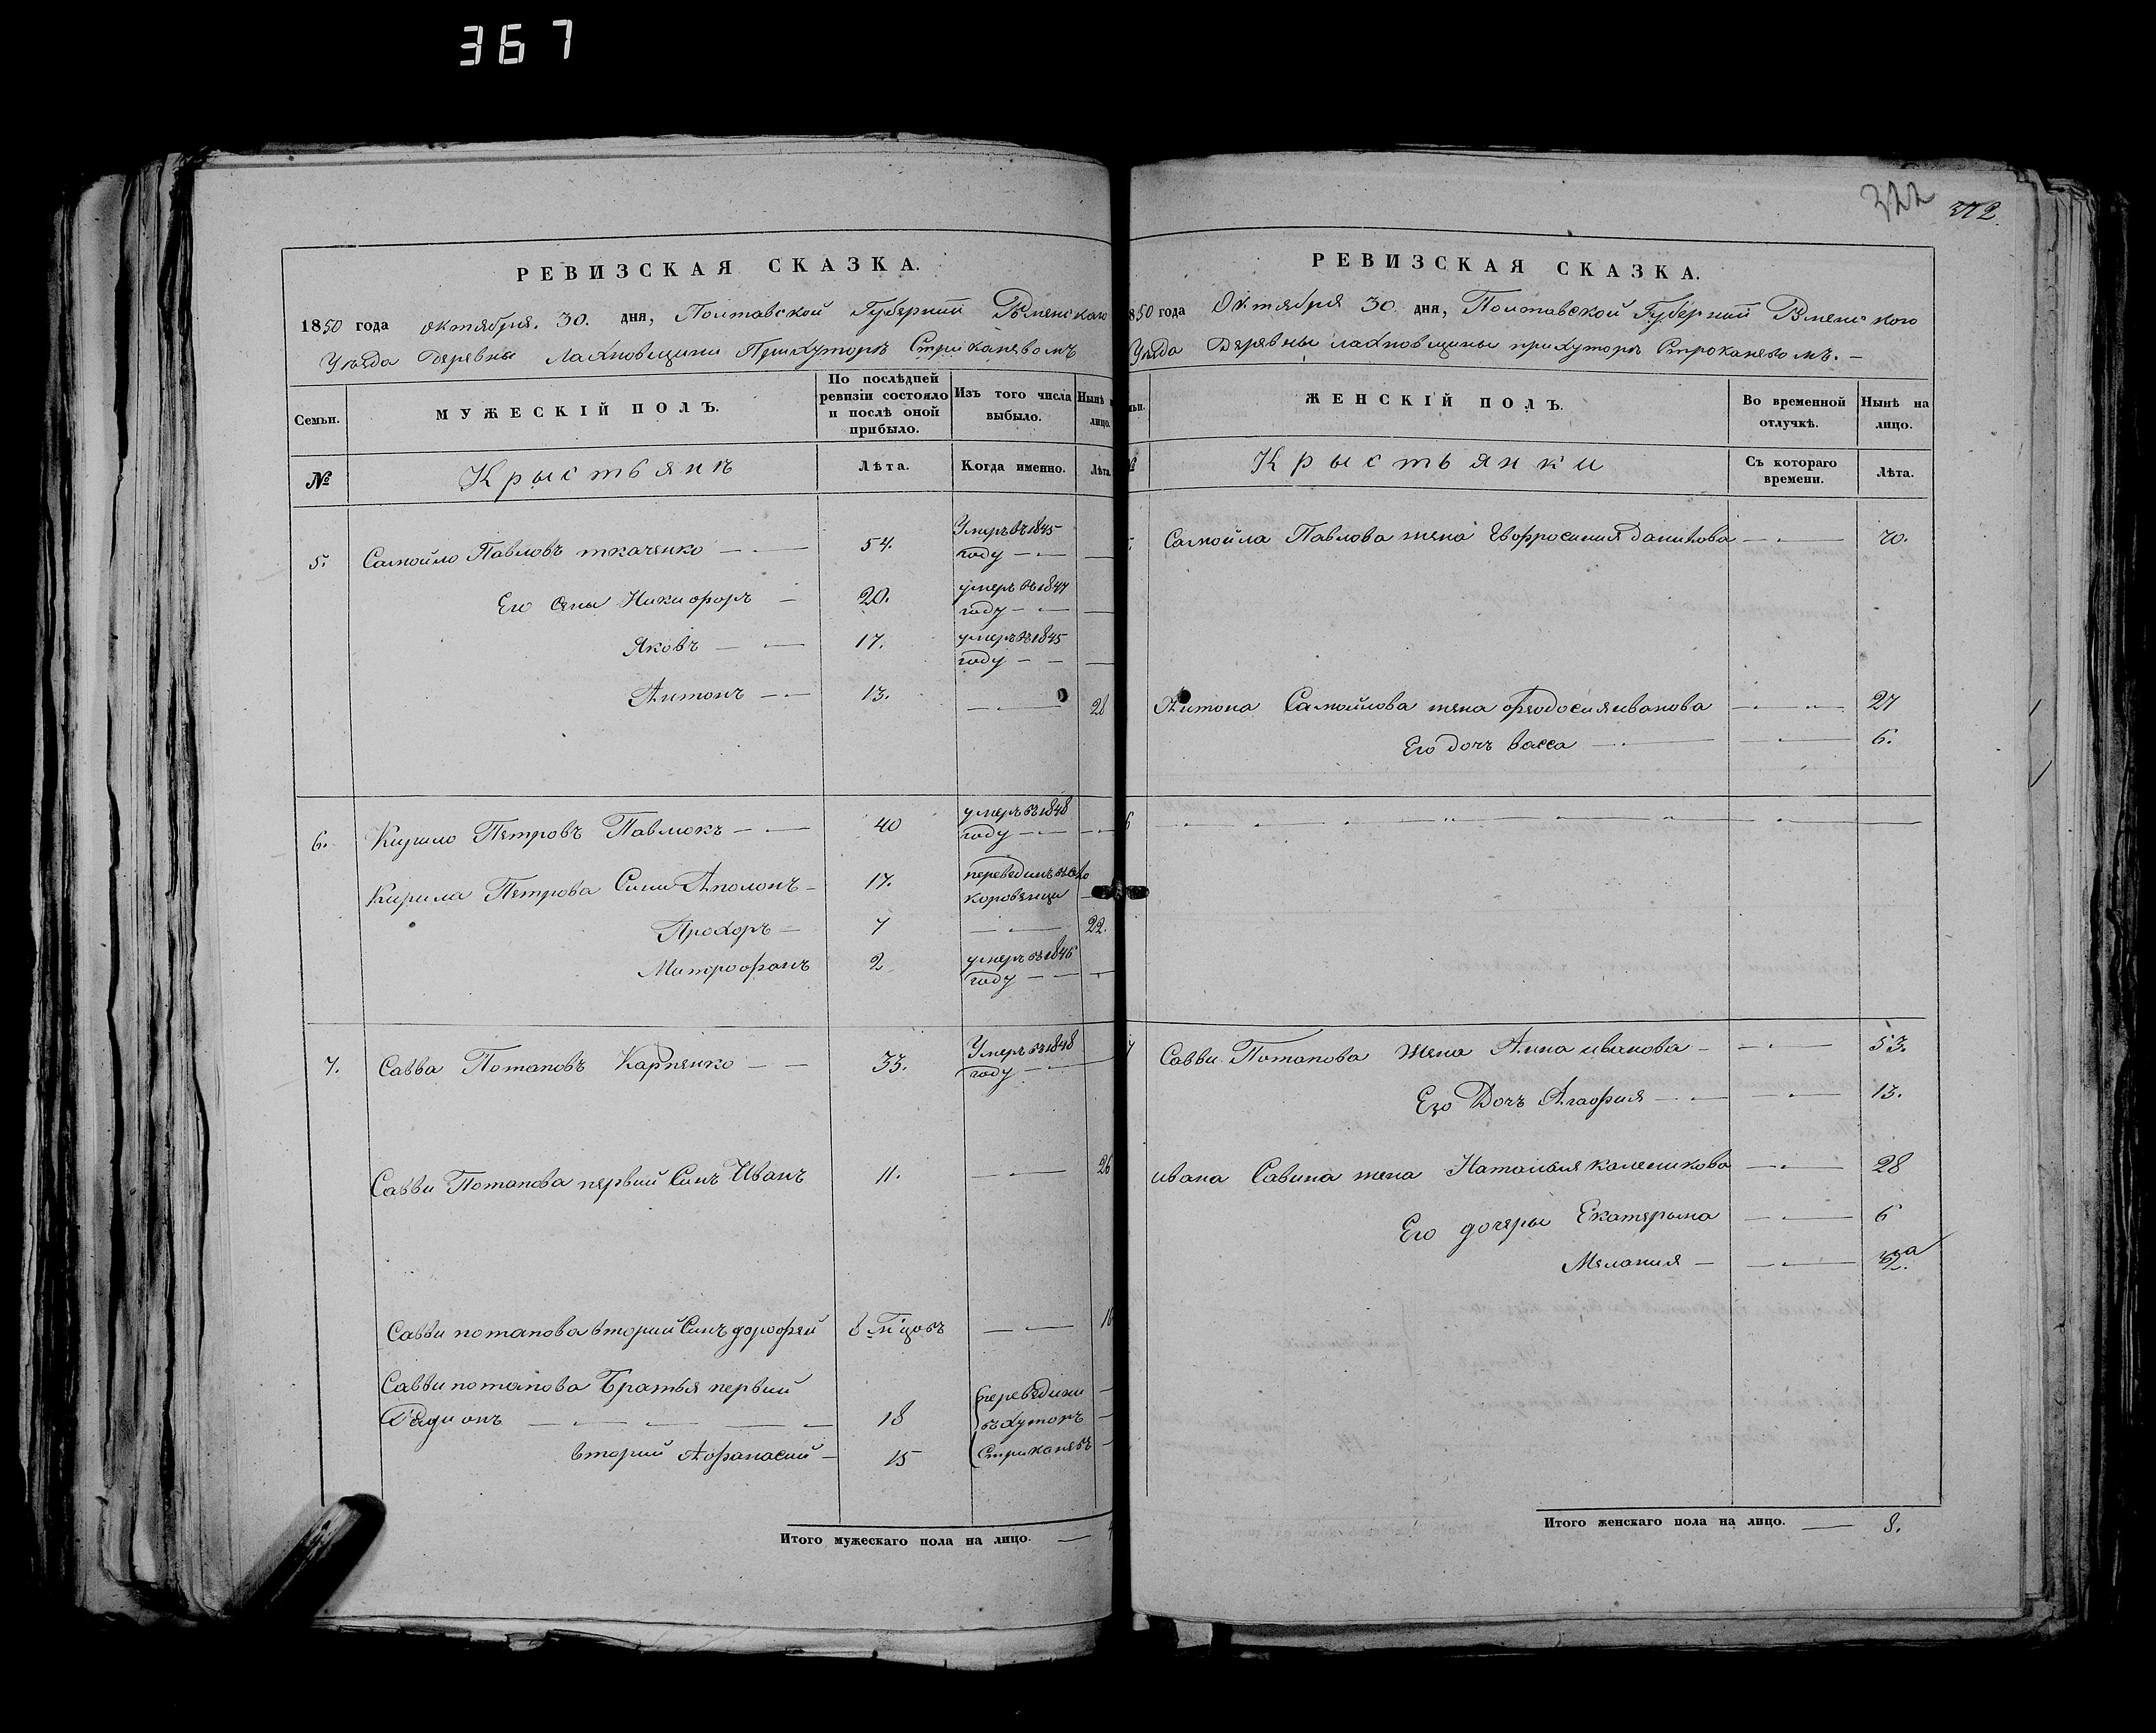 367
322 372.
РЕВИЗСКАЯ СКАЗКА.
1850 года октября. 30. дня, Полтавской Губернии Роменскаго
Уѣзда Деревни Лахновщини При Хуторѣ Стрикачевомъ
Семьи. МУЖЕСКІЙ ПОЛЪ. По послѣдней ревизіи состояло и послѣ оной прибыло. Изъ того числа выбыло. Нынѣ лицо.
№ Крыстьянъ Лѣта. Когда именно. Лѣта
5. Самойло Павловъ ткаченко 54. Умеръ въ 1845 году
Его сены Никифоръ 20. умеръ въ 1847 году
Яковъ 17. умеръ въ 1845 году
Антонъ 13. 28
6. Кирило Петровъ Павлюкъ 40 умеръ въ 1848 году
Кирила Петрова Сини Аполонъ 17. перевединъ въ село коровенци
Прохоръ 7 22.
Митрофанъ 2 умеръ въ 1845 году
7. Савва Потаповъ Карпенко 33. Умеръ въ 1848 году
Савви Потапова первий Синъ Иванъ 11. 26
Савви потапова вторий Синъ дорофей 8 м цовъ
Савви потапова Братья первий
Радионъ 18 переведини въ Хуторъ
вторий Афанасий 15 Стрикачевъ
Итого мужескаго пола на лицо.
РЕВИЗСКАЯ СКАЗКА.
850 года Октября 30 дня, Полтавской Губерний Роменского
Уѣзда Деревны лахновщины прихуторѣ Строкачевомъ.
ЖЕНСКІЙ ПОЛЪ. Во временной отлучкѣ. Нынѣ на лицо.
Крыстьянки Съ котораго времени. Лѣта.
Самойла Павлова жена Евфросиния Данилова 70.
Антона Самойлова жена феодосия иванова 27
Его дочъ васса 6.
6
Савви Потапова Жена Анна иванова 53.
Его Дочъ Агафия 13.
ивана Савина жена Наталия колесникова 28
Его дочеры Екатерына 6
Мелания
Итого женскаго пола на лицо. 8.